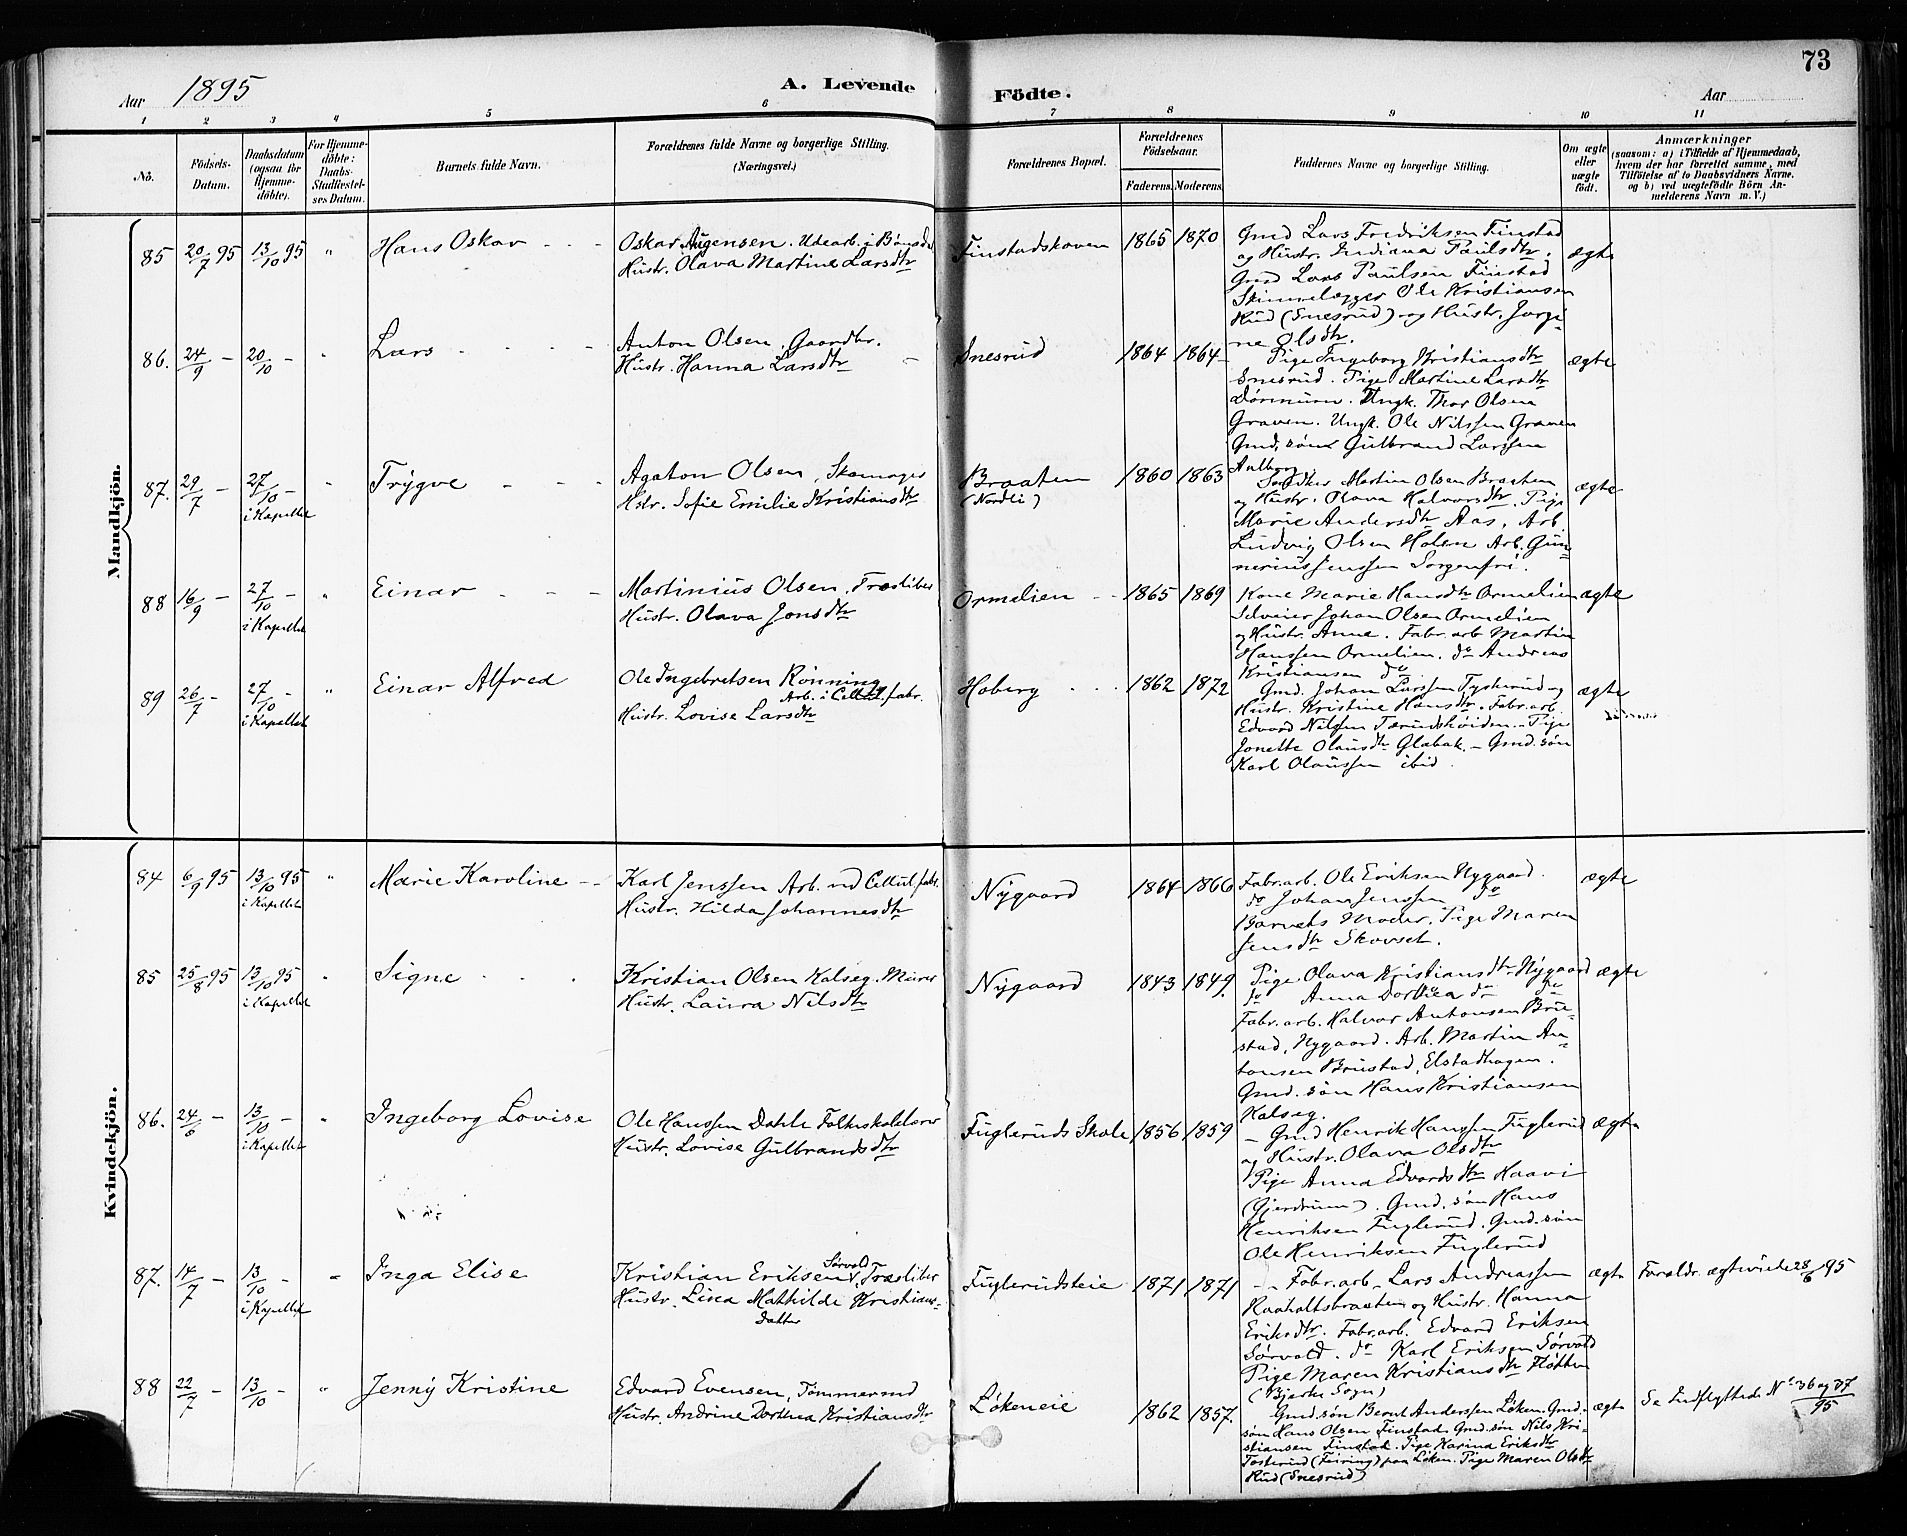 73
Aar 1895
A. Levende
Födte.
Aar
1 2 3 4 5 6 7 8 9 10 11
No.
Födsels-Datum.
Daabsdatum (ogsaa for Hjemme-döbte).
For Hjemme-döbte: Daabs-Stadfæstel-ses Datum.
Barnets fulde Navn.
Forældrenes fulde Navne og borgerlige Stilling.
(Næringsvei.)
Forældrenes Bopæl.
Forældrenes Födselsaar.
Faderens. Moderens.
Faddernes Navne og borgerlige Stilling.
Om ægte eller uægte födt.
Anmærkninger
(saasom: a) i Tilfælde af Hjemmedaab,
hvem der har forrettet samme, med
Tilföielse af to Daabsvidners Navne,
og b) ved uægtefödte Börn An-
melderens Navn m. V.)
Mandkjön.
85 20/7 95 13/10 95 " Hans Oskar
Oskar Augensen. Udearb. i
Hustr. Olava Martine Larsdtr
Finstadskoven 1865 1870
Gmd Lars Fredriksen Finstad
og Hustr. Indiana Paulsdtr.
Gmd Lars Paulsen Finstad
Skinnelægger Ole Kristiansen
Rud (Snesrud) og Hustr. Jørgi-
ne Olsdtr.
ægte
86. 24/9 - 20/10 - " Lars
Anton Olsen, Gaardbr.
Hustr. Hanna Larsdtr
Snesrud 1864 1864
Pige Ingeborg Kristiansdtr
Snesrud. Pige Martine Larsdtr
Dønnum. Ungk. Thor Olsen
Graven. Ungk. Ole Nilssen Graven
Gmd. søn Gulbrand Larssen
ægte
87. 29/7 - 27/10 - i Kapellet " Trygve
Agaton Olsen, Skomager
Hstr. Sofie Emilie Kristiansdtr
Braaten
(Nordli)
1860 1863
Martin Olsen Braaten
og Hustr. Olava Halvorsdtr. Pige
Marie Andersdtr Aas. Arb
Ludvig Olsen Holsen Arb. Gun-
nerius Jenssen Sorgenfri.
ægte
88 16/9 - 27/10 - i Kapellet " Einar
Martinius Olsen, Træsliber
Hustr. Olava Jonsdtr
Ormelien 1865 1869
Kone Marie Hansdtr Ormelien
Selveier Johan Olsen Ormelien
og Hustr. Anne. Fabr. arb Martin
Hanssen Ormelien. do Andreas
Kristiansen do
ægte
89 26/7 - 27/10 - i Kapellet " Einar Alfred
Ole Ingebretsen Rønning
Arb. i Cellul. fabr.
Hustr. Lovise Larsdtr
Hoberg 1862 1872
Gmd. Johan Larssen Tyskerud og
Hustr. Kristine Hansdtr. Fabr. arb.
Edvard Nilsen Tærudshøiden. Pige
Jonette Olausdtr Glabak. - Gmd. søn
Karl Olaussen ibid.
ægte
Kvindekjön.
84 6/9 95 13/10 95 i Kapellet " Marie Karoline
Karl Jenssen Arb. ved Cellul. fabr.
Hustr. Hilda Johannesdtr
Nygaard 1864 1866
Fabr. arb. Ole Eriksen Nygaard.
do Johan Jenssen do
Barnets Moder. Pige Maren
Jensdtr Skovset.
ægte
85 25/8 95 13/10 95 i Kapellet " Signe
Kristian Olsen Kalseg. Murer
Hustr. Laura Nilsdtr
Nygaard 1843 1849.
Pige Olava Kristiansdtr Nygaard
do Anna Dorthea do do
Fabr. arb. Halvor Antonsen Bru-
stad, Nygaard. Arb. Martin An-
tonsen Brustad, Elstadhagen.
Gmd. søn Hans Kristiansen
Kalseg.
ægte
86. 24/8 - 13/10 - i Kapellet " Ingeborg Lovise
Ole Hanssen Dahle Folkeskolelærer
Hustr. Lovise Gulbrandsdtr
Fugleruds Skole 1856 1859
- Gmd Henrik Hanssen Fuglerud
og Hustr. Olava Olsdtr
Pige Anna Edvardsdtr Haavi
(Gjerdrum). Gmd. søn Hans
Henriksen Fuglerud. Gmd. søn
Ole Henriksen Fuglerud
ægte
87. 14/7 - 13/10 - i Kapellet " Inga Elise
Kristian Eriksen Sørvold, Træsliber
Hustr. Lina Mathilde Kristians-
Datter
Fuglerudseie 1871 1871
- Fabr. arb. Lars Andreassen
Raaholtsbraaten og Hustr. Hanna
Eriksdtr. Fabr. arb. Edvard Eriksen
Sørvold. do Karl Eriksen Sørvold
Pige Maren Kristiansdtr Fløtten
(Bjerke Sogn)
ægte
Forældr. ægteviede 28/6 95
88 22/7 - 13/10 - " Jenny Kristine
Edvard Evensen, Tømmermd
Hustr. Andrine Dorthea Kristiansdtr
Løkeneie 1862 1857.
Gmd. søn Bernt Anderssen Løken. Gmd.
søn Hans Olsen Finstad. Gmd. søn Nils Kri-
stiansen Finstad. Pige Karina Eriksdtr
Tosterud (Feiring) paa Løken. Pige Maren Olsdtr
Rud (Snesrud)
ægte
Se Indflyttede No 36 og 37/95